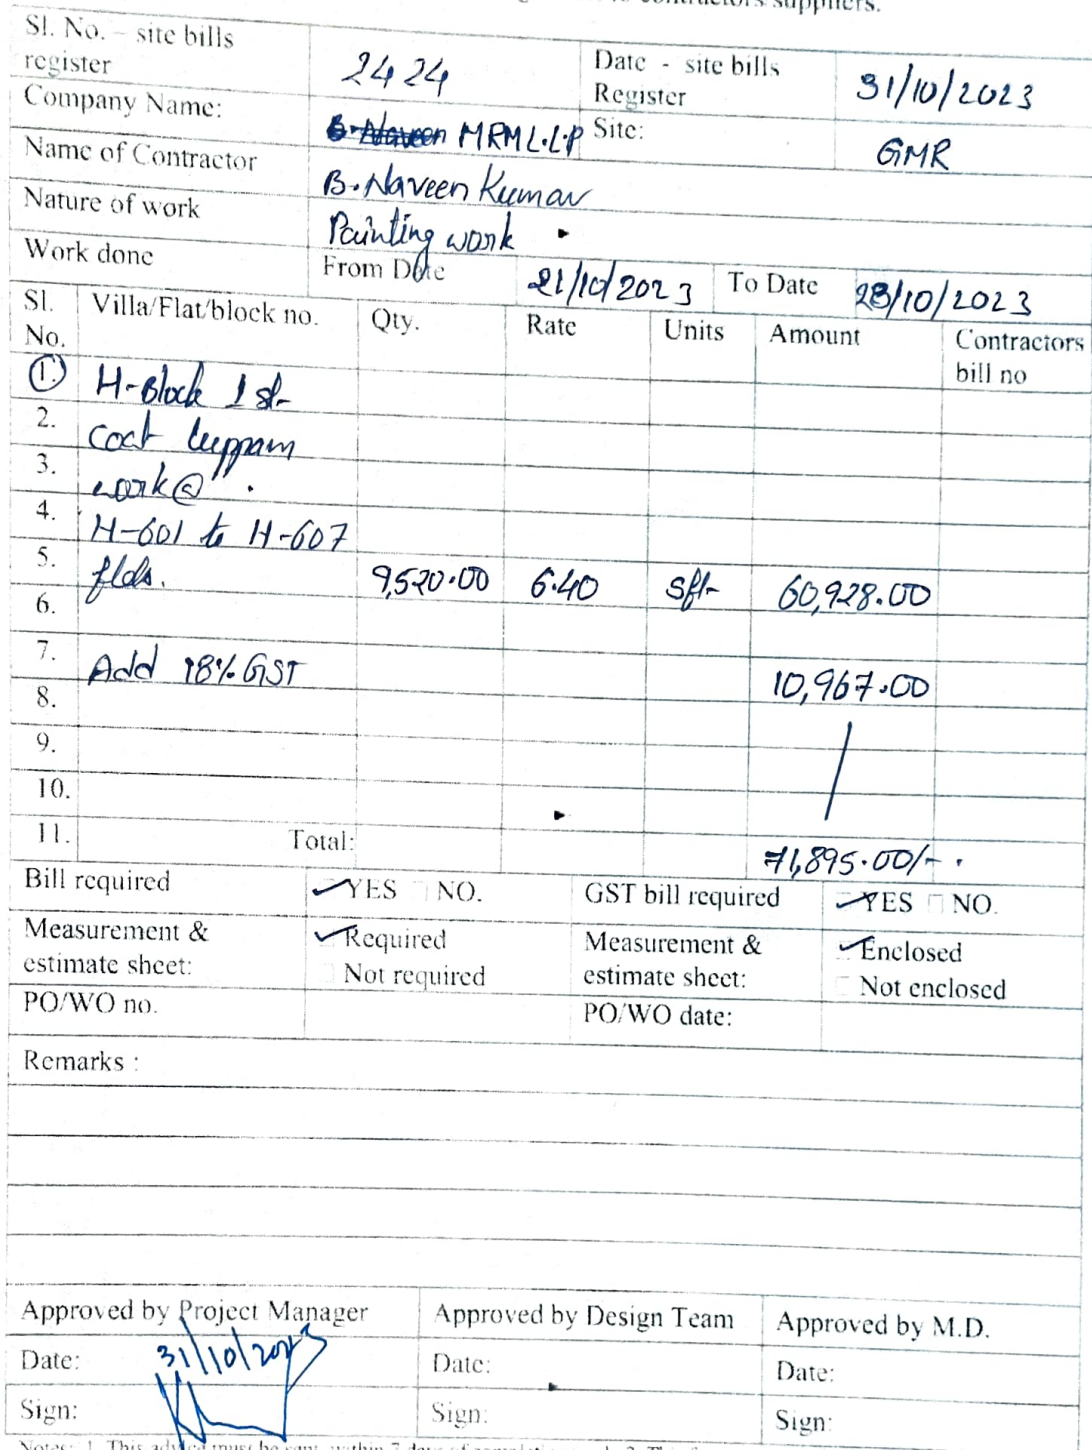 contractors suppliers.
Sl. No. – site bills register 2424 Date - site bills Register 31/10/2023
Company Name: B. Naveen MRM L.L.P Site: GMR
Name of Contractor B. Naveen Kumar
Nature of work Painting work
Work done From Date 21/10/2023 To Date 28/10/2023
Sl. No. Villa/Flat/block no. Qty. Rate Units Amount Contractors bill no
1. H-Block 1st
2. coat luppam
3. work @
4. H-601 to H-607
5. flats. 9,520.00 6.40 sft 60,928.00
6.
7. Add 18% GST 10,967.00
8.
9.
10.
11. Total: 71,895.00/-
Bill required YES NO. GST bill required YES NO.
Measurement & estimate sheet: Required Not required Measurement & estimate sheet: Enclosed Not enclosed
PO/WO no. PO/WO date:
Remarks :
Approved by Project Manager Approved by Design Team Approved by M.D.
Date: 31/10/2023 Date: Date:
Sign: Sign: Sign: